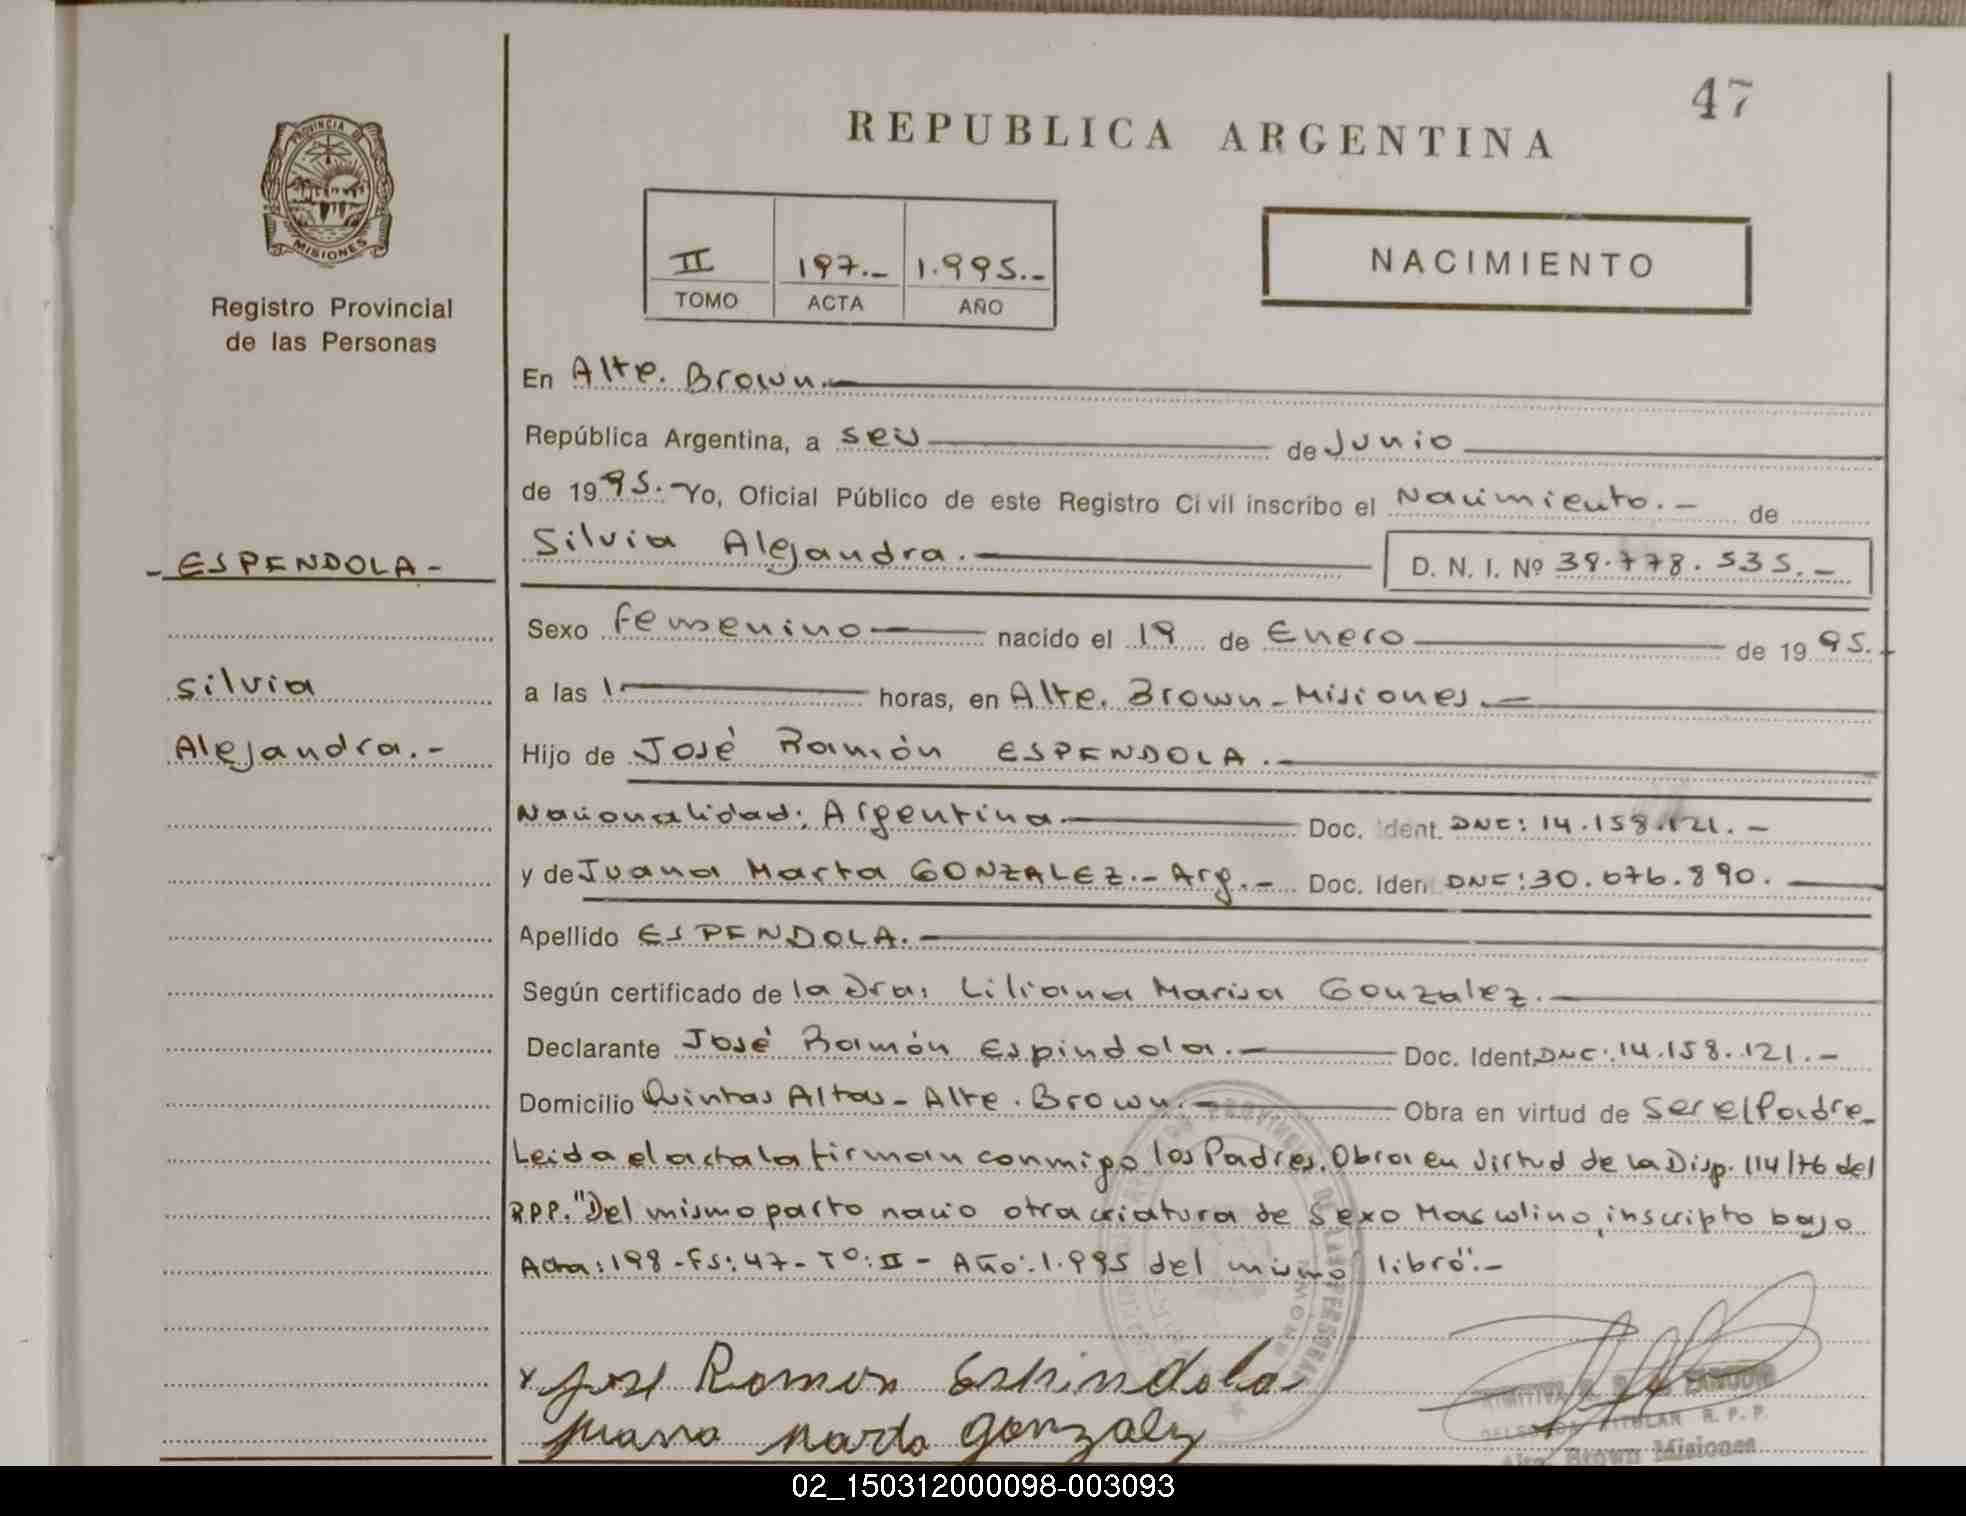 47
REPUBLICA ARGENTINA
PROVINCIA DE
MISIONES
Registro Provincial
de las Personas
II 197.- 1.995.-
TOMO ACTA AÑO
NACIMIENTO
En Alte. Brown.-
República Argentina, a seis de Junio
de 1995.- Yo, Oficial Público de este Registro Civil inscribo el Nacimiento.- de
- ESPENDOLA -
Silvia Alejandra.-
D. N. I. Nº 38.778.535.-
Sexo femenino nacido el 19 de Enero de 1995.-
Silvia
a las 1 horas, en Alte. Brown - Misiones.-
Alejandra.-
Hijo de José Ramón ESPENDOLA.-
Nacionalidad: Argentina Doc. Ident. DNI: 14.158.121.-
y de Juana Marta GONZALEZ.- Arg.- Doc. Iden DNI: 30.676.890.
Apellido ESPENDOLA.-
Según certificado de la Dra: Liliana Marisa Gonzalez.-
Declarante José Ramón Espindola.- Doc. Ident. DNI: 14.158.121.-
Domicilio Quintas Altas - Alte. Brown.- Obra en virtud de Ser el Padre-
Leida el acta la firman conmigo los Padres. Obra en virtud de la Disp. 114/76 del
R.P.P. "Del mismo parto nacio otra criatura de Sexo Masculino, inscripto bajo
Acta: 198 - Fs: 47 - Tº: II - Año: 1.995 del mismo libro".-
x Jose Ramon Espindola
Juana Marta Gonzalez
DELEGADA TITULAR R. P. P.
Alte. Brown Misiones
02_150312000098-003093